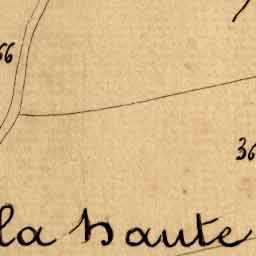 66
36
la haute